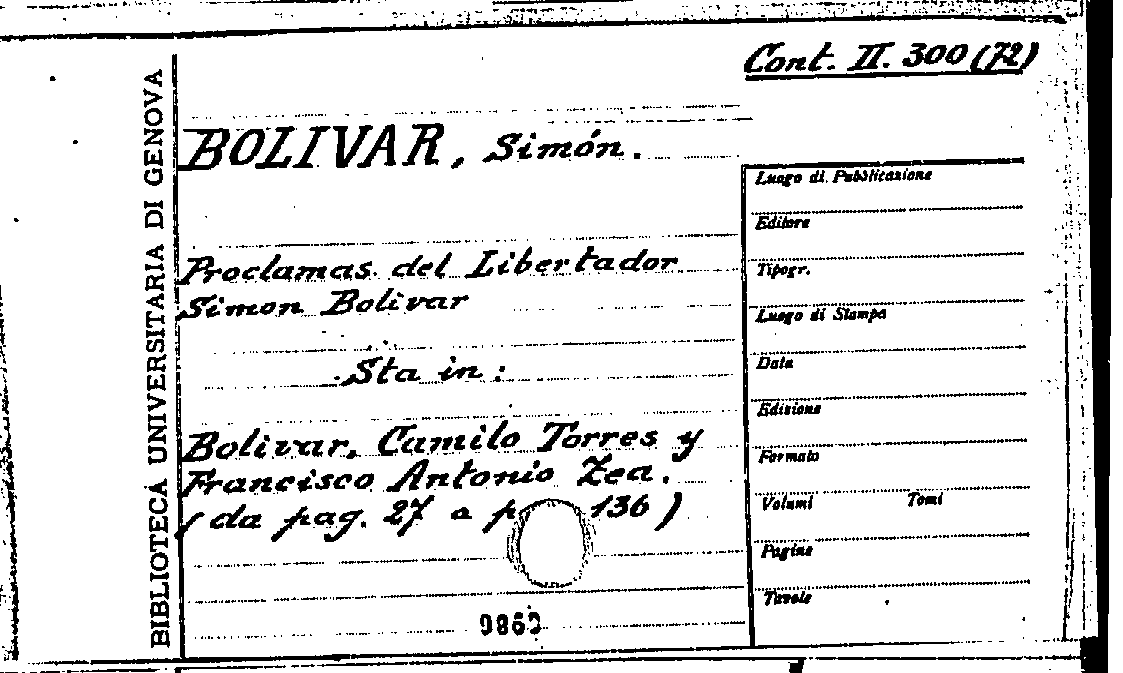 Cont. II. 300 (72)
BIBLIOTECA UNIVERSITARIA DI GENOVA
BOLIVAR, Simón.
Proclamas del Libertador
Simon Bolivar
Sta in:
Bolivar, Camilo Torres y
Francisco Antonio Zea.
(da pag. 27 a p 136)
Luogo di Pubblicazione
Editore
Tipogr.
Luogo di Stampa
Data
Edizione
Formato
Volumi Tomi
Pagine
Tavole